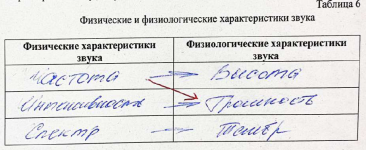 Таблица 6
Физические и физиологические характеристики звука
Физические характеристики звука
Физиологические характеристики звука
Частота → Высота
Интенсивность → Громкость
Спектр → Тембр